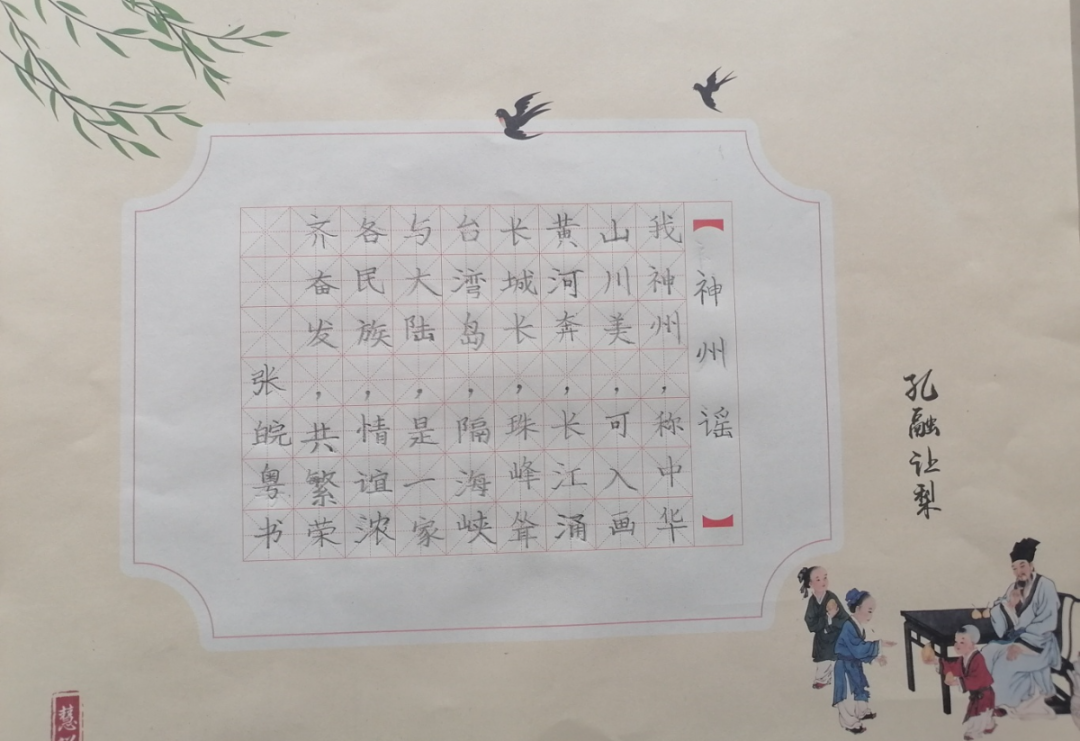 【神州谣】
我神州，称中华
山川美，可入画
黄河奔，长江涌
长城长，珠峰耸
台湾岛，隔海峡
与大陆，是一家
各民族，情谊浓
齐奋发，共繁荣
张皖粤书
孔融让梨
慧